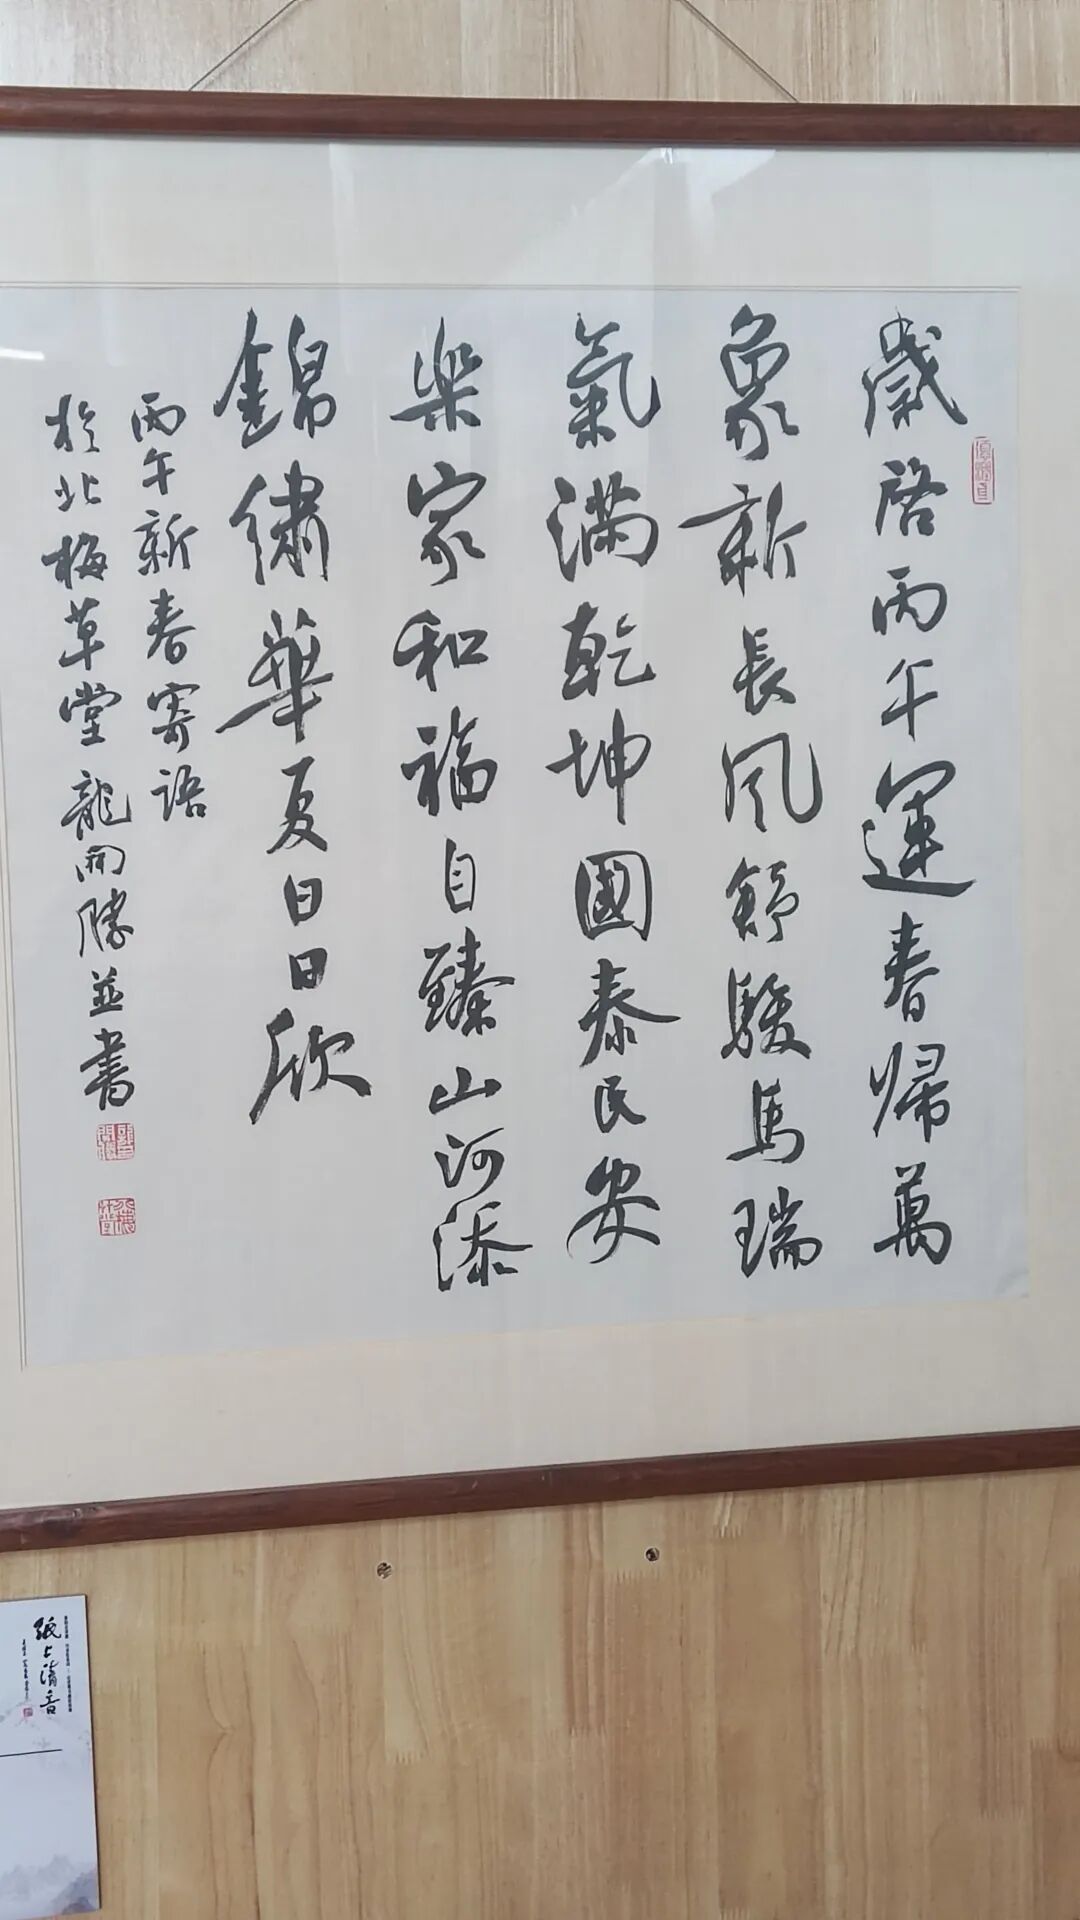 歲啓丙午運春歸萬
象新長風舒駿馬瑞
氣滿乾坤國泰民安
樂家和福自臻山河添
錦繡華夏日日欣
丙午新春寄語
於北梅草堂龍開勝並書
紙上清音